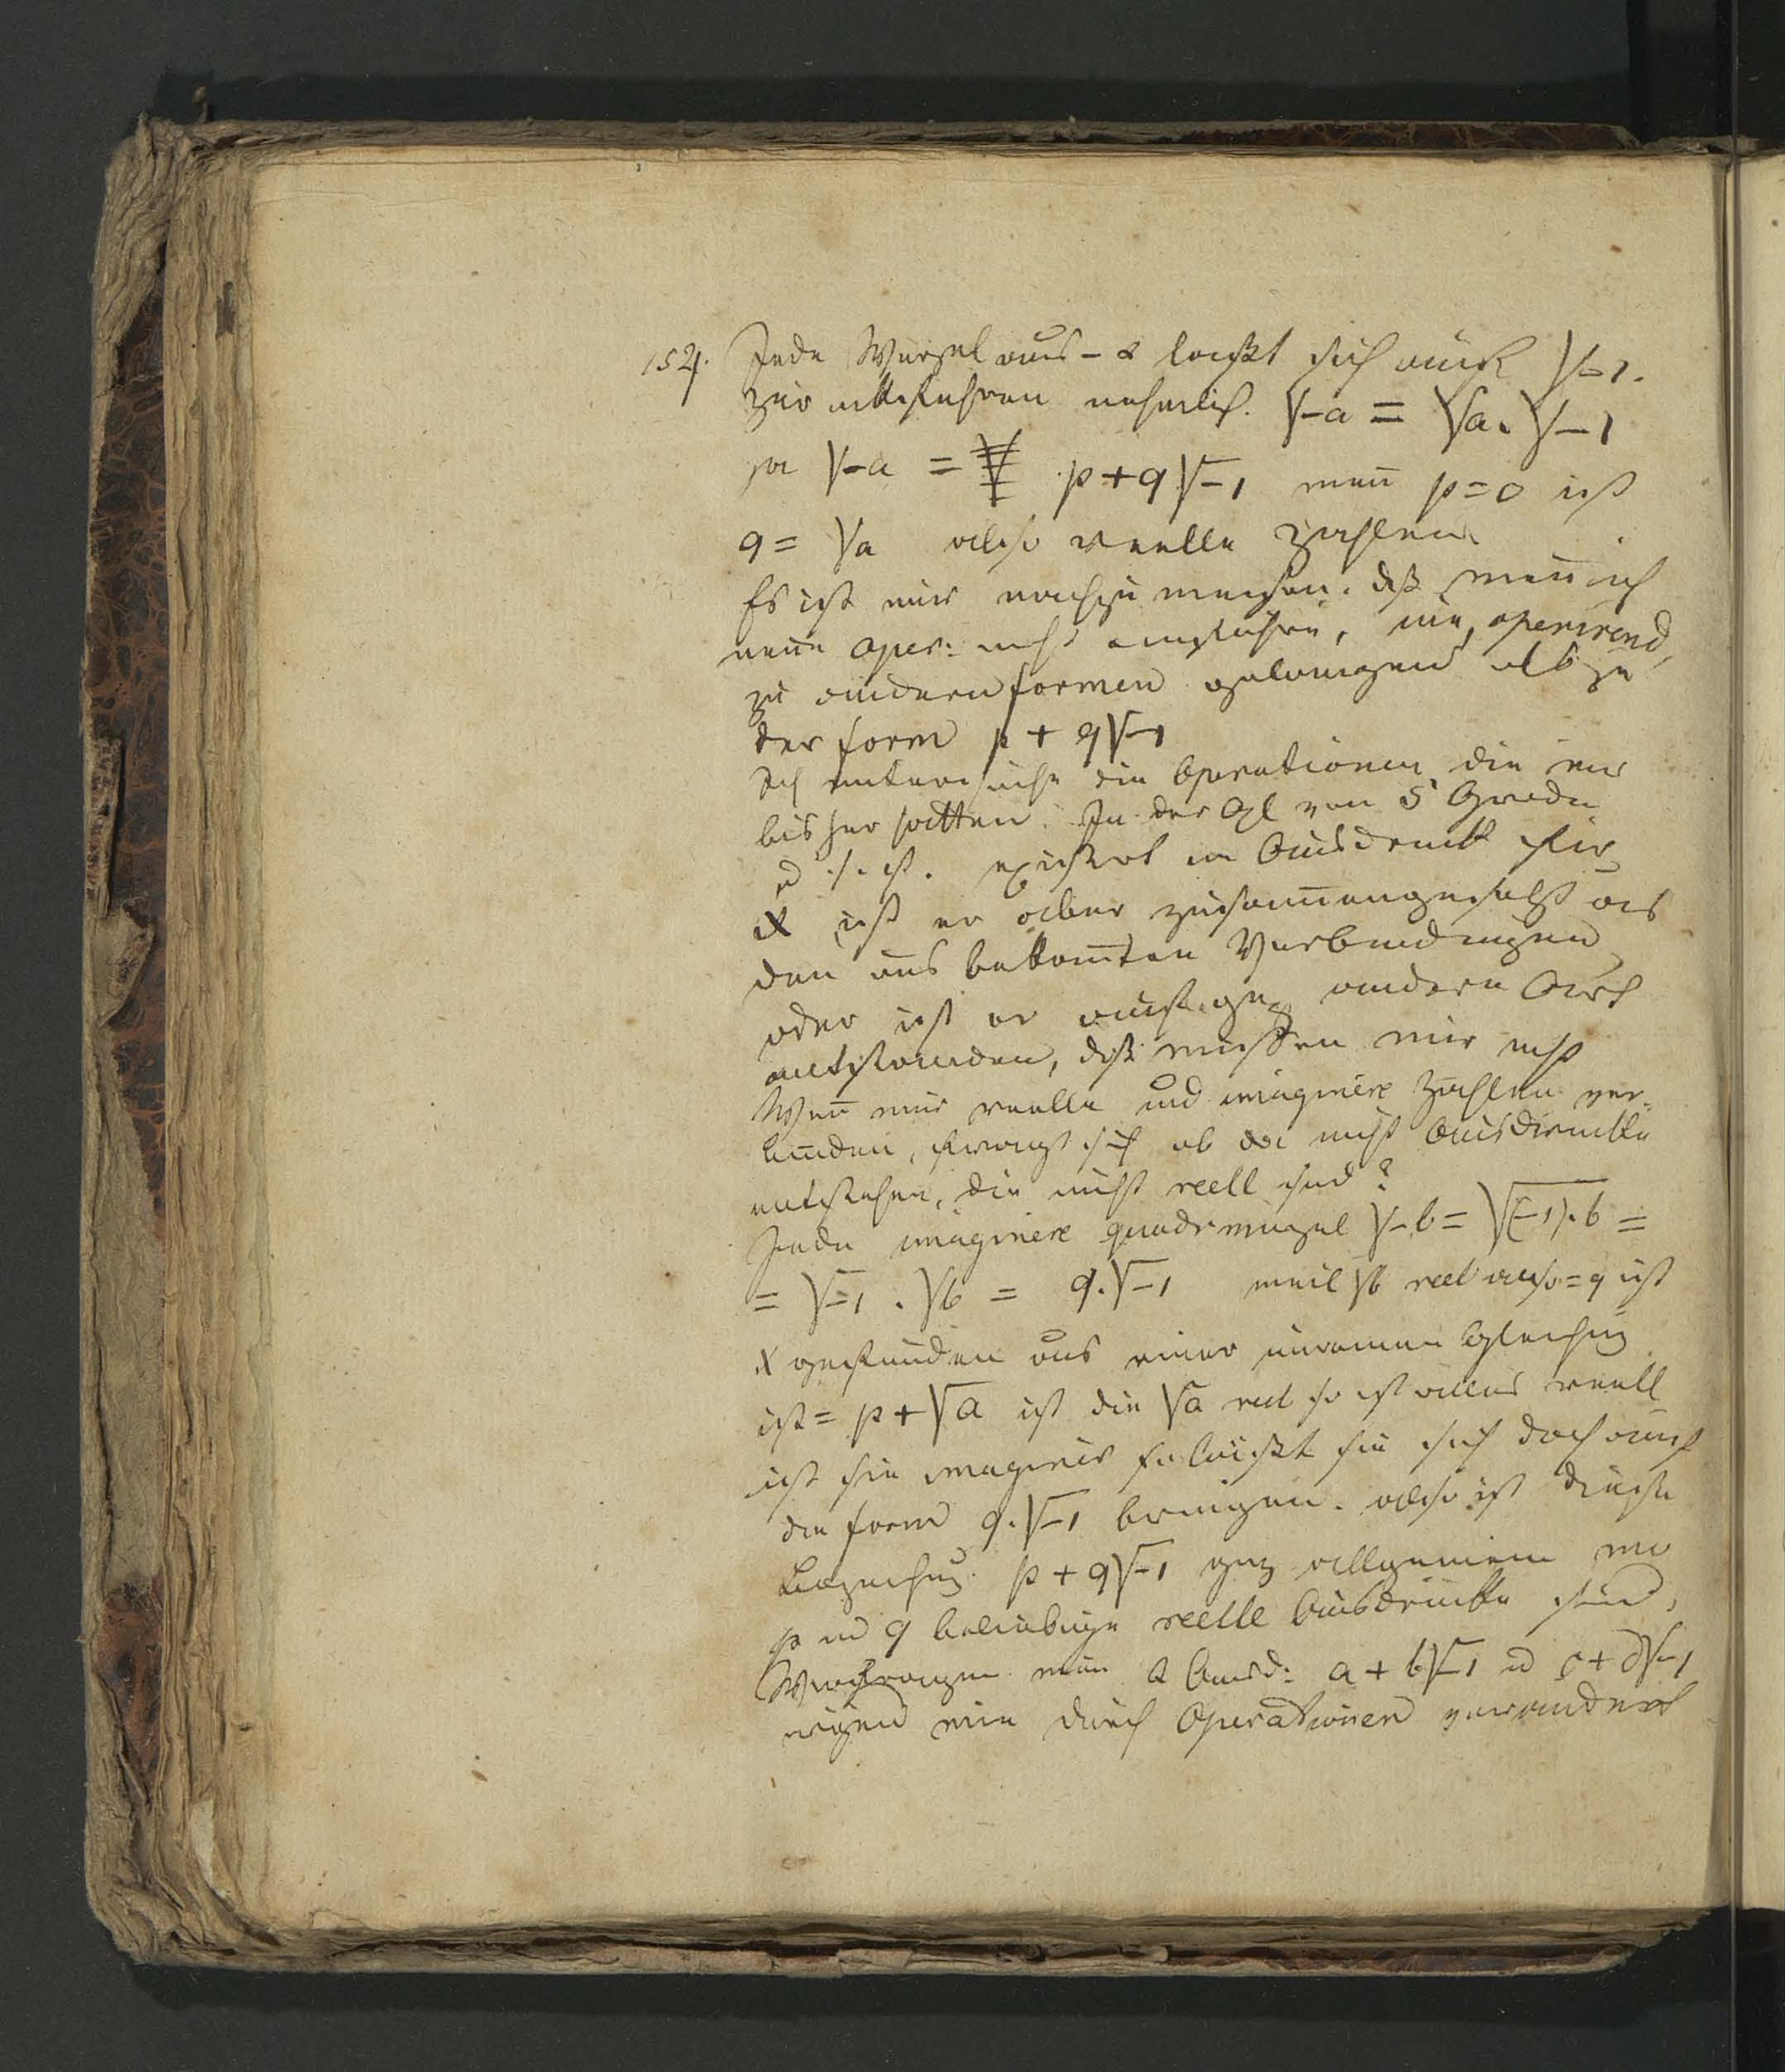 152. Jede Wurzel aus - a laeßt sich auf √-1.
zurükführen nehmlich. √-a = √a. √-1
√-a = p+q√-1 wen̄ p=0 ist
q = √a also reelle Zahlen
Es ist nur nachzuweisen. dß wen̄ ich
neue Oper: nicht einführe, nie, operirend,
zu andern formen gelangen als zu
der form p + q√-1
Ich untersuche die Operationen die wir
bisher hatten. In der Gl von 5 Grade
existirt ein Ausdruck für
x ist er aber zusam̄engesetzt aus
den uns bekan̄ten Verbindungen
oder ist er auf eine andere Art
entstanden, diß wissen wir nicht
Wen̄ wir reelle und imaginäre Zahlen ver-
binden, fragt sich ob da nicht Ausdrücke
entstehen, die nicht reell sind?
Jede imaginäre quadrwurzel √-b = √(-1).b =
= √-1 . √b = q.√-1 weil √b reel also = q ist
x gefunden aus einer unreinen Gleichung
ist = p + √a ist die √a reel so ist alles reell
ist sie imaginär so läßt sie sich doch auf
die form q.√-1 bringen. also ist diese
Bezeichung p + q√-1 ganz allgemein wo
p und q beliebige reelle Ausdrücke sind,
nun 2 Ausd: a + b√-1 u c + d√-1
wie durch Operationen verändert